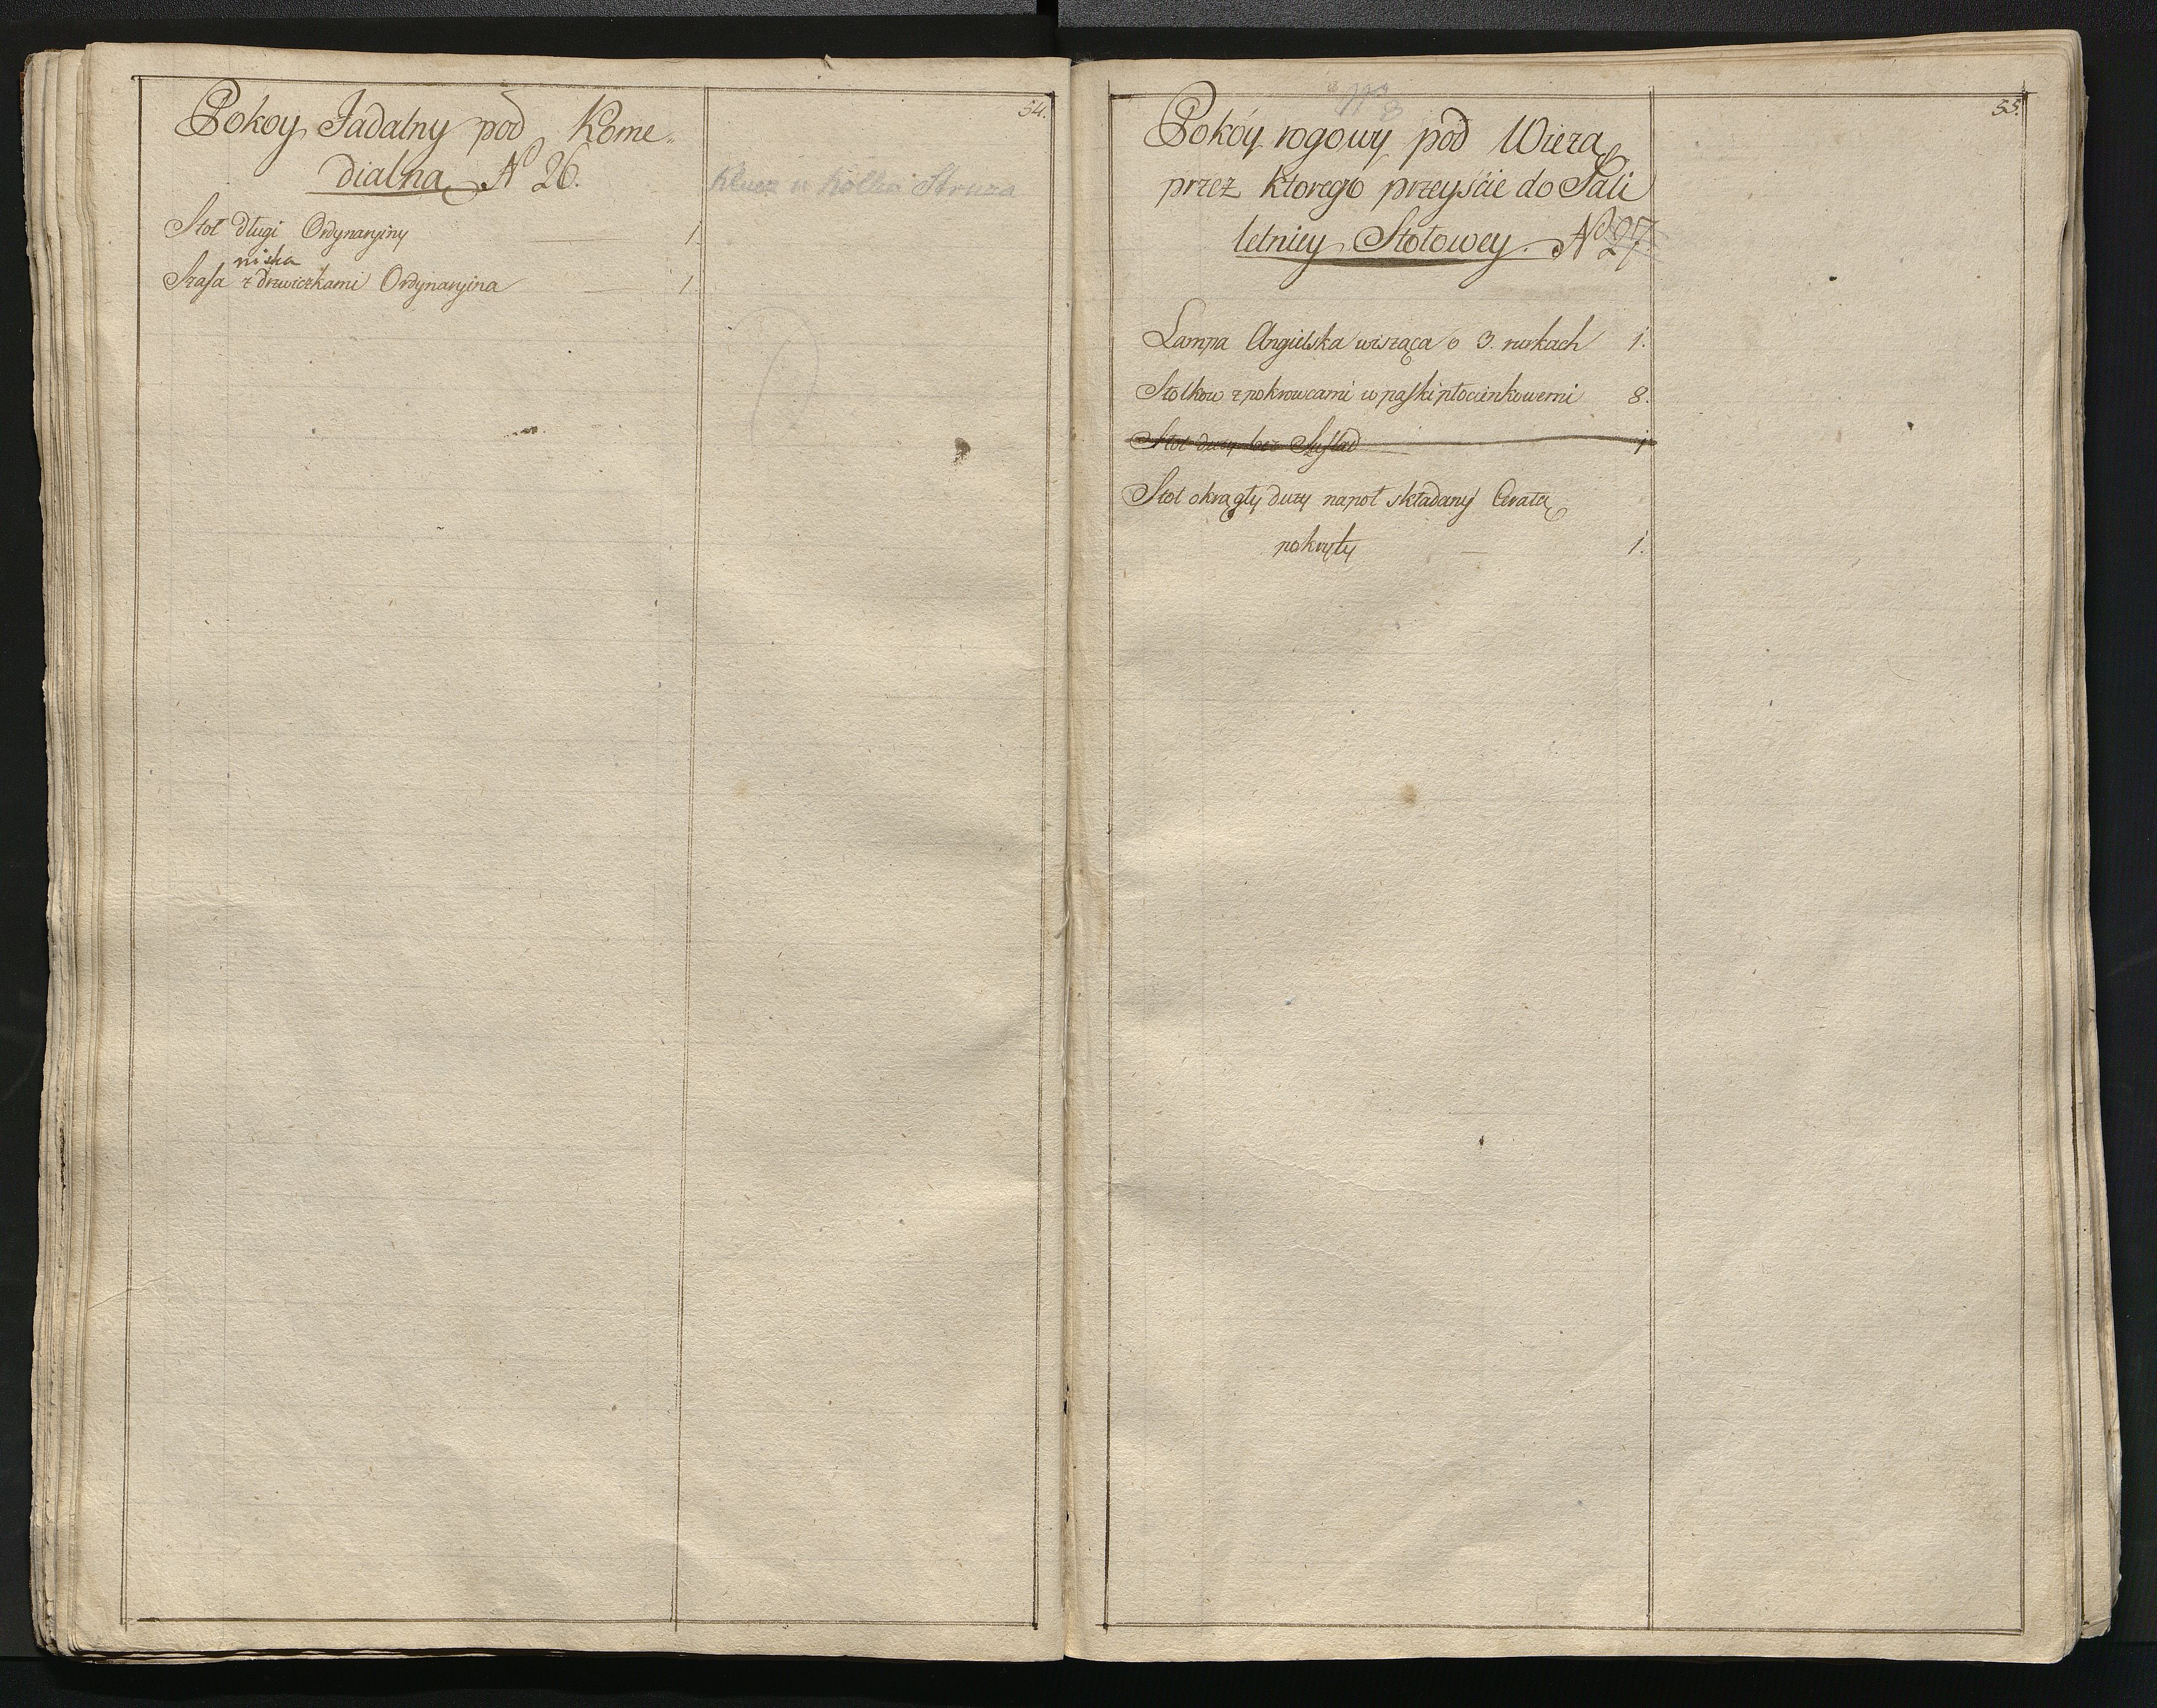 54.
Pokoy Jadalny pod Kome„
dialną N° 26.
Klucz u Struza
Stoł długi Ordynaryiny 1.
niska
Szafa z drzwiczkami Ordynaryina 1.
55.
Pokóy rogowy pod Wieżą
przez ktorego przeyście do Sali
letniey Stołowey. N° 27
Lampa Angielska wisząca o 3. rurkach 1.
Stołkow z pokrowcami w paski płocienkowemi 8.
Stoł duży bez Szuflad 1
Stoł okrągły duży napoł składany Ceratą
pokryty 1.